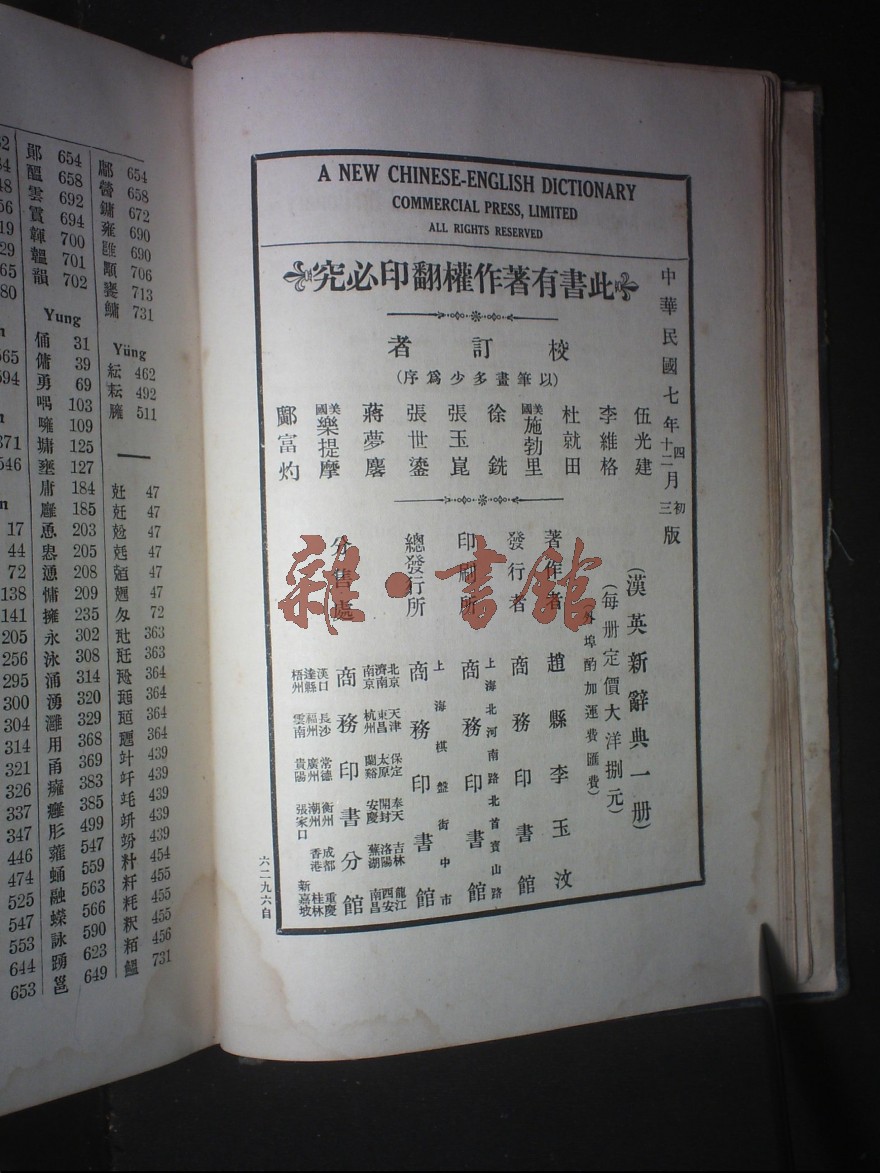 鄖 654
醖 658
雲 692
賱 694
韗 700
韞 701
韻 702
Yung
俑 31
傭 39
勇 69
喁 103
噰 109
墉 125
壅 127
庸 184
廱 185
恿 203
慂 208
慵 209
擁 235
永 302
泳 308
涌 314
湧 320
灉 329
用 368
甬 369
癰 385
肜 499
蕹 547
蛹 559
融 563
蠑 566
詠 590
踴 623
邕 649
鄘 654
醟 658
鏞 672
雍 690
顒 706
饔 713
鱅 731
Yüng
耘 492
兙 47
兛 47
瓩 363
竏 439
籵 454
粁 455
粍 455
粨 456
A NEW CHINESE-ENGLISH DICTIONARY
COMMERCIAL PRESS, LIMITED
ALL RIGHTS RESERVED
中華民國七年四月初版
十二月三版
此書有著作權翻印必究
校訂者
(以筆畫多少爲序)
伍光建
李維格
杜就田
美國施勃里
徐銑
張玉崑
張世鎏
蔣夢麐
美國樂提摩
鄺富灼
(漢英新辭典一册)
(每册定價大洋捌元)
外埠酌加運費匯費)
著作者 趙縣李玉汶
發行者 商務印書館
上海北河南路北首寶山路
印刷所 商務印書館
上海棋盤街中市
總發行所 商務印書館
分售處 商務印書分館
北京 天津 保定 奉天 吉林 龍江
濟南 東昌 太原 開封 洛陽 西安
南京 杭州 蘭谿 安慶 蕪湖 南昌
漢口 長沙 常德 衡州 成都 重慶
達縣 福州 廣州 潮州 香港 桂林
梧州 雲南 貴陽 張家口 新嘉坡
六二九六自
雜·書館